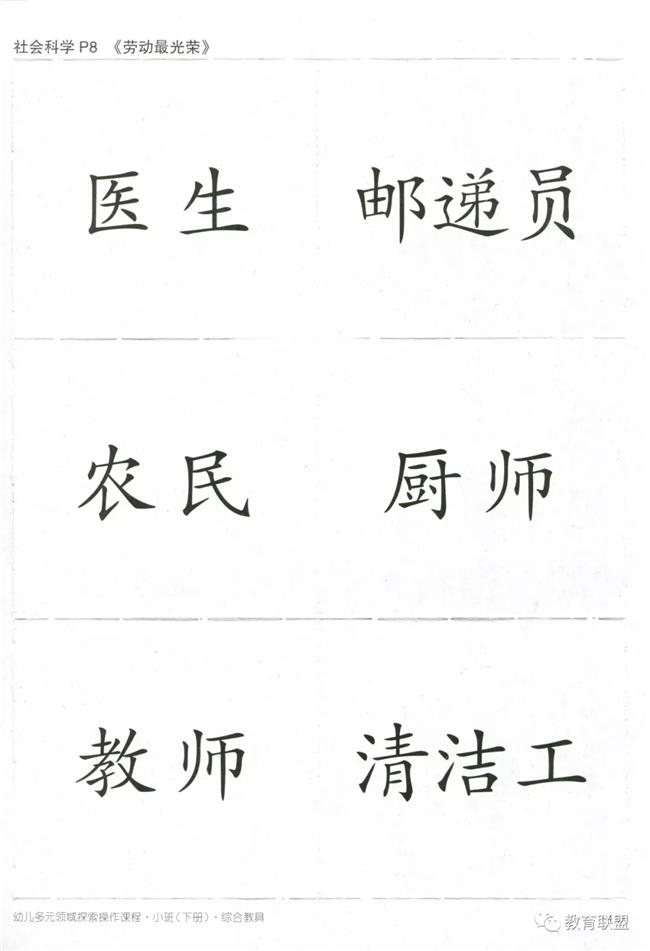 社会科学 P8 《劳动最光荣》
医生
邮递员
农民
厨师
教师
清洁工
幼儿多元领域探索操作课程·小班(下册)·综合教具
教育联盟